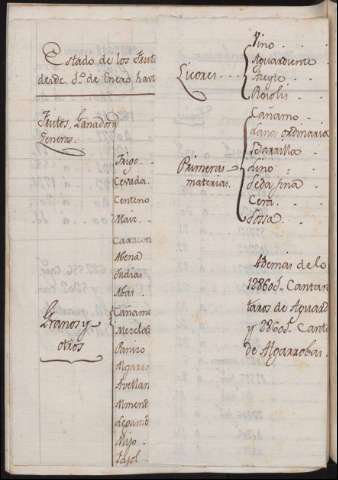 Estado de los Frut
desde 1.º de Enero, hast
Frutos, Ganados
Generos.
Granos y
otros
Trigo
Cevada.
Centeno
Maiz.
Caracon
Abena
Judias
Abas
Cañamo
Mezcla
Panizo
Algarro
Avellan
Almend
Mijo.
Licores
Vino
Aguardiente
Aceyte
Rosolis
Primeras
materias.
Canamo
Lana ordinaria
Barrilla
Lino
Seda fina
Cera
Sossa
Ademas de lo
Cantar
taros de Aguard
Canta
de Algarrobas.